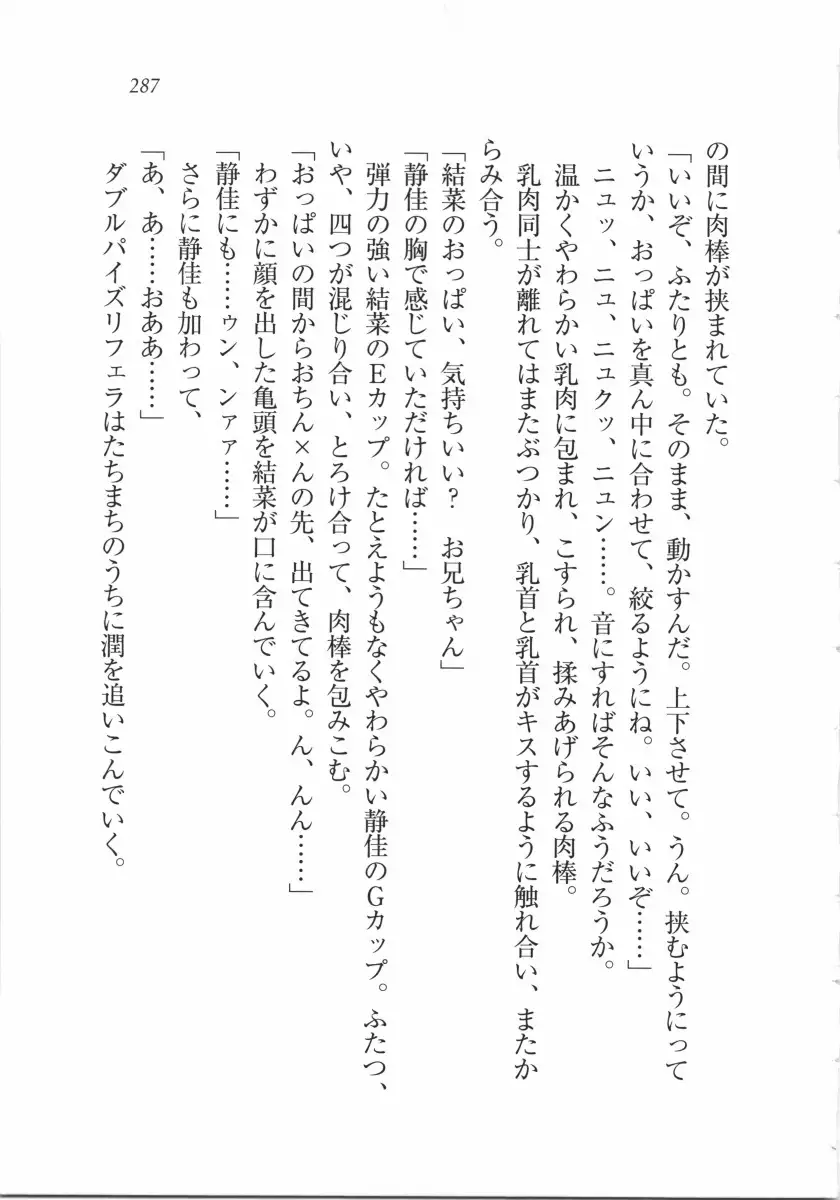 287
の間に肉棒が挟まれていた。
「いいぞ、ふたりとも。そのまま、動かすんだ。上下させて。うん。挟むようにって
いうか、おっぱいを真ん中に合わせて、絞るようにね。いい、いいぞ……」
ニュッ、ニュ、ニュクッ、ニュン……。音にすればそんなふうだろうか。
温かくやわらかい乳肉に包まれ、こすられ、揉みあげられる肉棒。
乳肉同士が離れてはまたぶつかり、乳首と乳首がキスするように触れ合い、またか
らみ合う。
「結菜のおっぱい、気持ちいい?　お兄ちゃん」
「静佳の胸で感じていただければ……」
弾力の強い結菜のEカップ。たとえようもなくやわらかい静佳のGカップ。ふたつ、
いや、四つが混じり合い、とろけ合って、肉棒を包みこむ。
「おっぱいの間からおちん×んの先、出てきてるよ。ん、んん……」
わずかに顔を出した亀頭を結菜が口に含んでいく。
「静佳にも……ゥン、ンァァ……」
さらに静佳も加わって、
「あ、あ……おああ……」
ダブルパイズリフェラはたちまちのうちに潤を追いこんでいく。